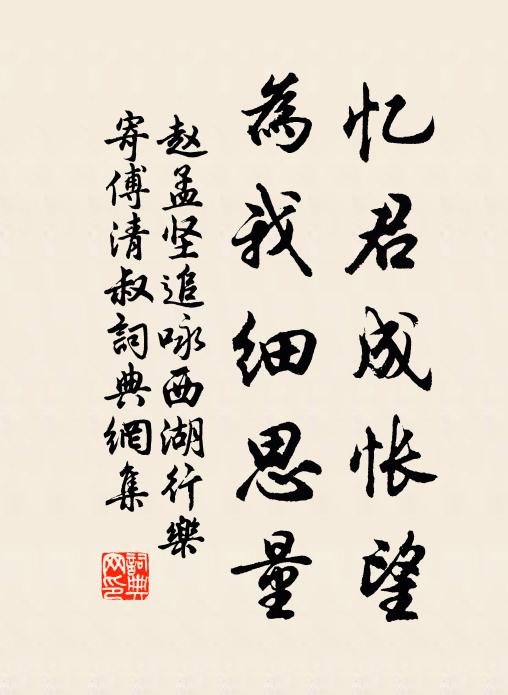 忆君成怅望
為我细思量
赵孟坚追咏西湖行樂
寄傅清叔詞典網集
詞典网印